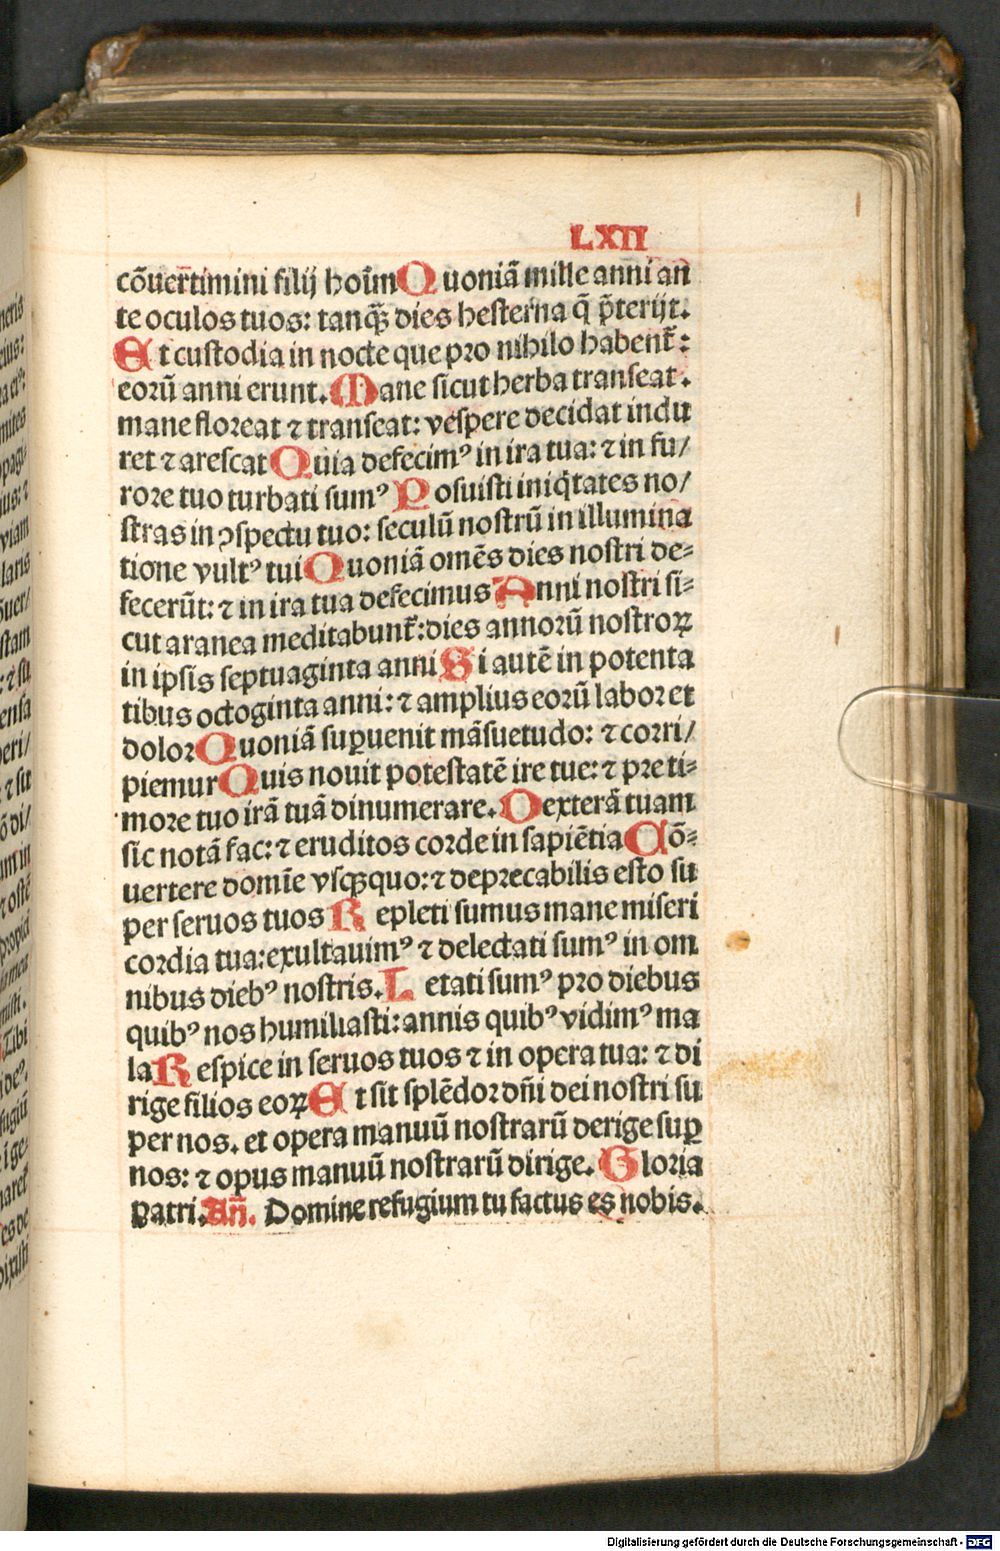 LXII
cōuertimini filij hoīm Quoniā mille anni an
te oculos tuos: tanqꝫ dies hesterna q̄ p̄terijt.
Et custodia in nocte que pro nihilo habent̃:
eorū anni erunt. Mane sicut herba transeat.
mane floreat ⁊ transeat: vespere decidat indu
ret ⁊ arescat Quia defecimꝰ in ira tua: ⁊ in fu/
rore tuo turbati sumꝰ Posuisti iniq̄tates no/
stras in ꝯspectu tuo: seculū nostrū in illumina
tione vultꝰ tui Quoniā omēs dies nostri de-
fecerūt: ⁊ in ira tua defecimus Anni nostri si-
cut aranea meditabunt̃: dies annorū nostroꝝ
in ipsis septuaginta anni Si autē in potenta
tibus octoginta anni: ⁊ amplius eorū labor et
dolor Quoniā suꝑuenit māsuetudo: ⁊ corri/
piemur Quis nouit potestatē ire tue: ⁊ pre ti-
more tuo irā tuā dinumerare. Dexterā tuam
sic notā fac: ⁊ eruditos corde in sapiētia Cō-
uertere domīe vsqꝫquo: ⁊ deprecabilis esto su
per seruos tuos Repleti sumus mane miseri
cordia tua: exultauimꝰ ⁊ delectati sumꝰ in om
nibus diebꝰ nostris. Letati sumꝰ pro diebus
quibꝰ nos humiliasti: annis quibꝰ vidimꝰ ma
la Respice in seruos tuos ⁊ in opera tua: ⁊ di
rige filios eoꝝ Et sit splēdor dñi dei nostri su
per nos. et opera manuū nostrarū derige suꝑ
nos: ⁊ opus manuū nostrarū dirige. Gloria
Patri. Añ. Domine refugium tu factus es nobis.
Digitalisierung gefördert durch die Deutsche Forschungsgemeinschaft - DFG